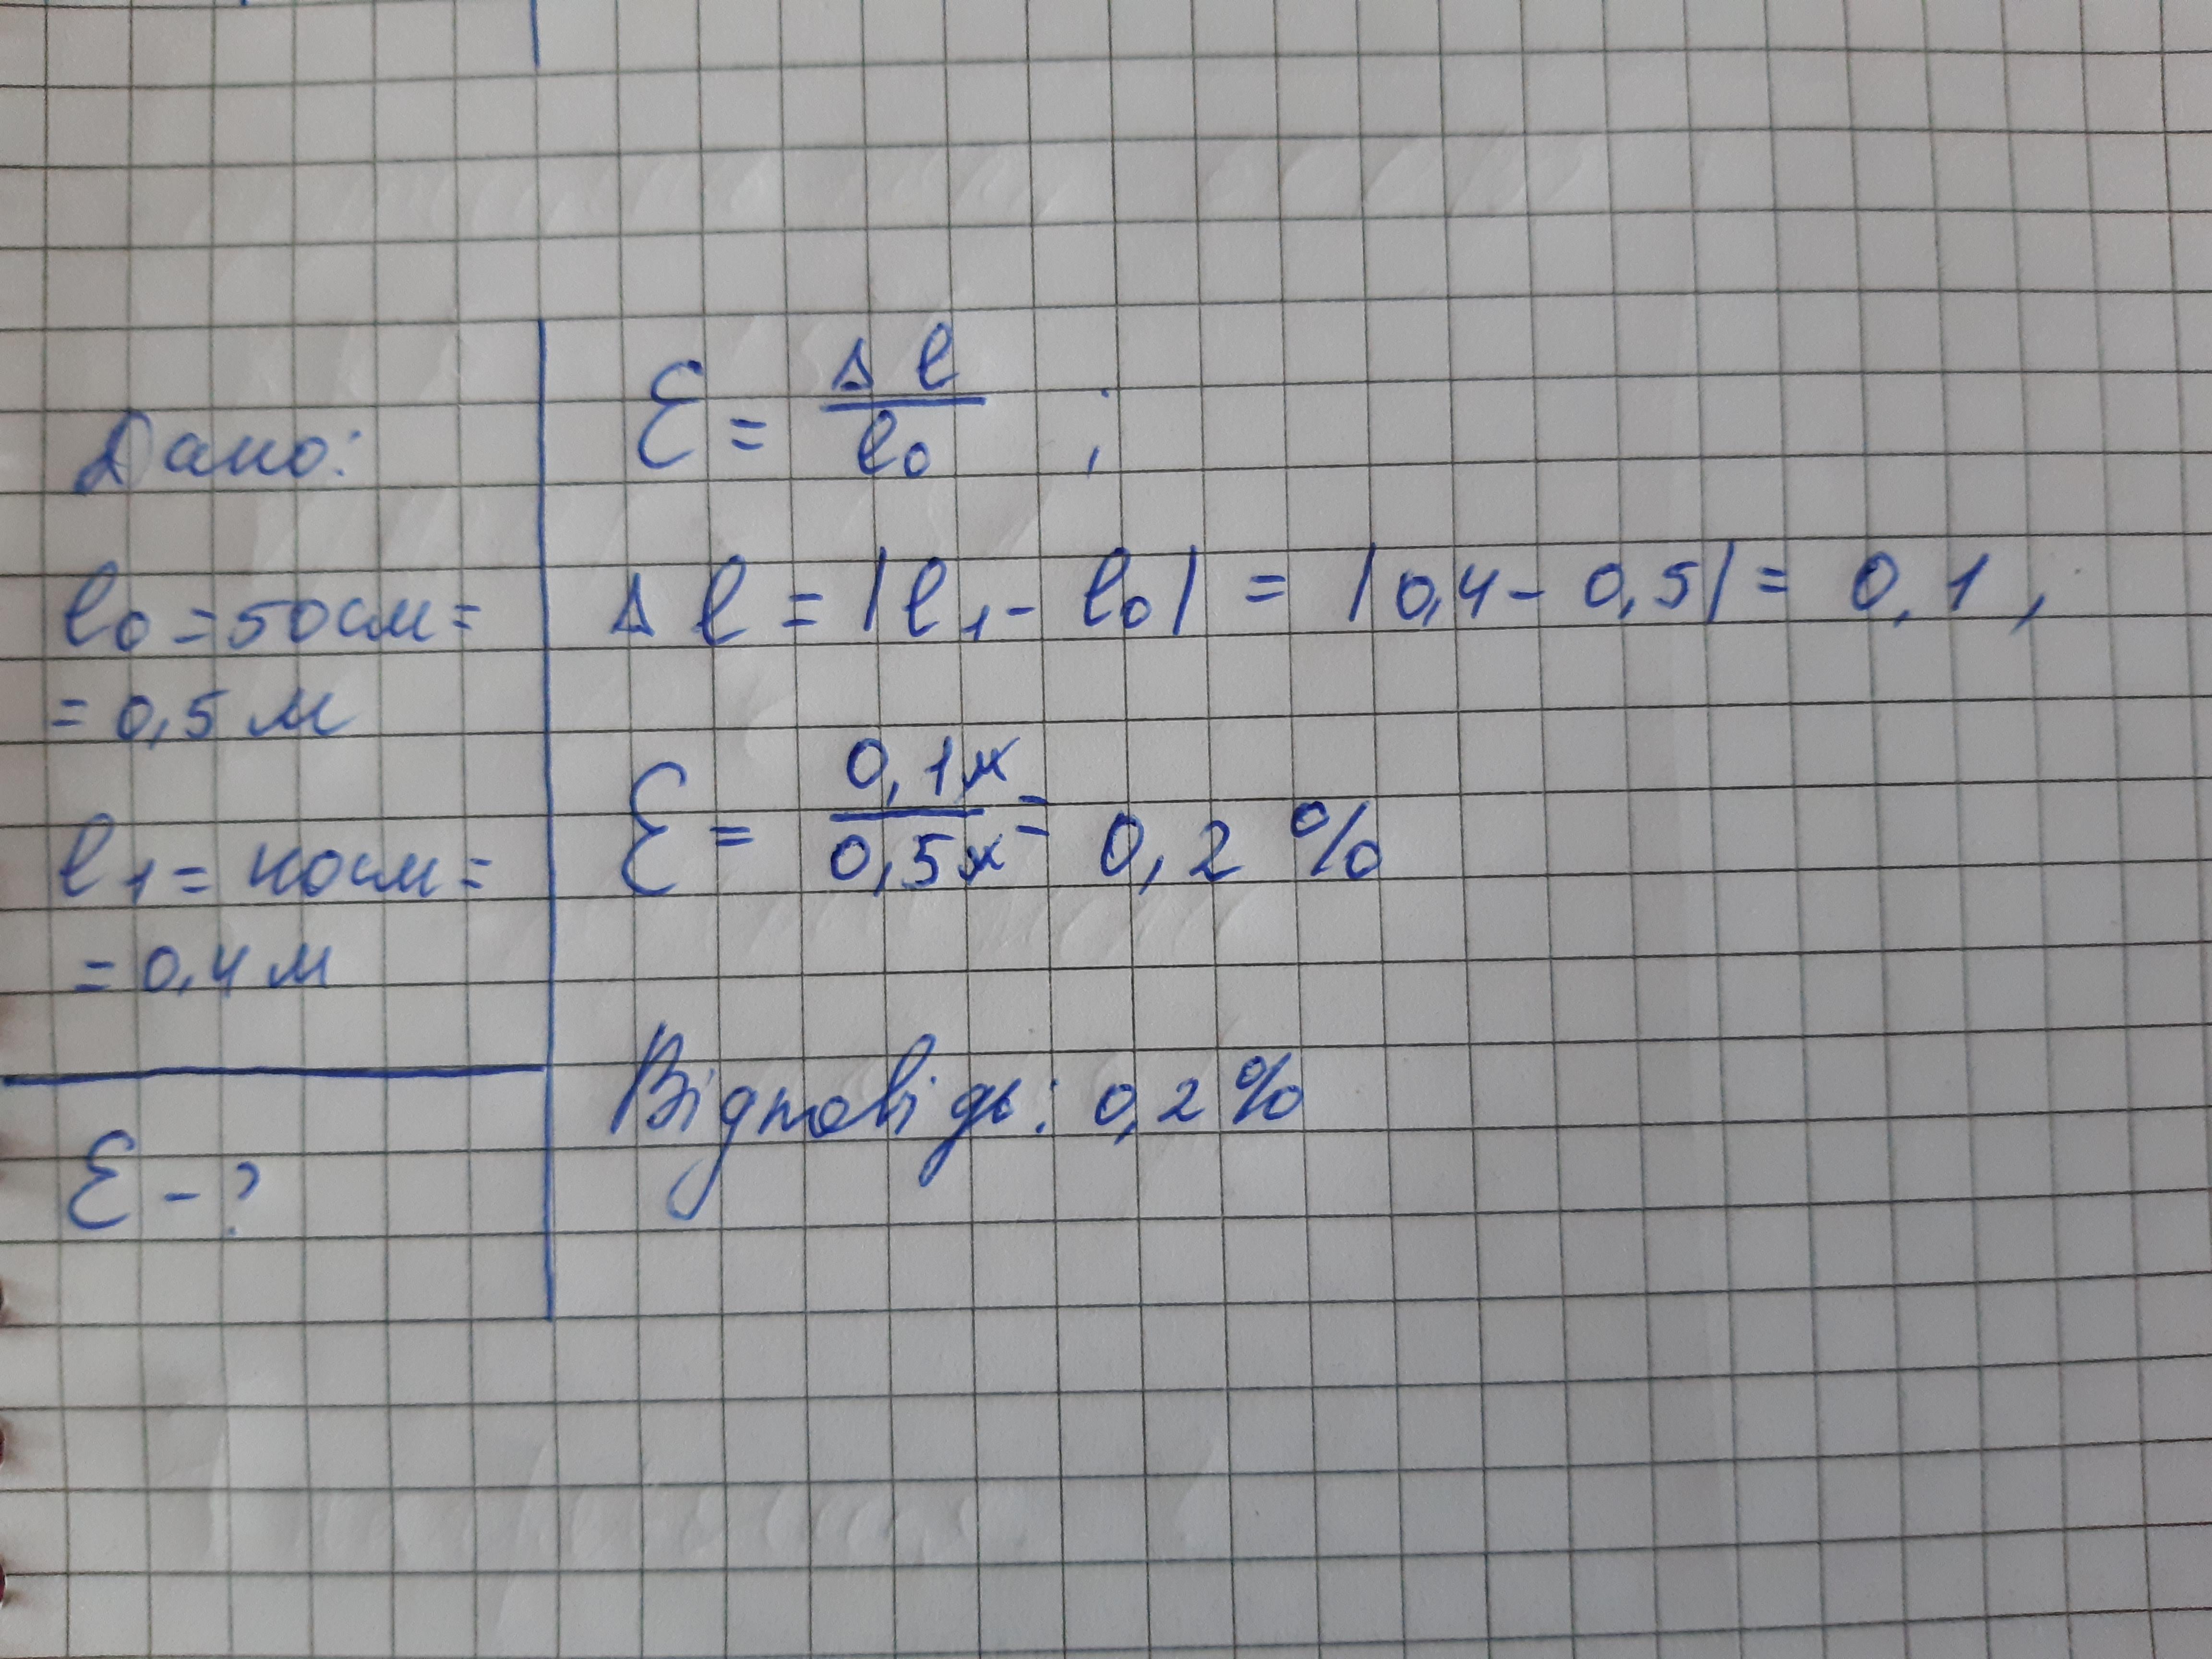 Дано:
l₀ = 50 см =
= 0,5 м
l₁ = 40 см =
= 0,4 м
ε - ?
ε = Δl / l₀ ;
Δl = |l₁ - l₀| = |0,4 - 0,5| = 0,1 ,
ε = 0,1м / 0,5м = 0,2 %
Відповідь: 0,2 %